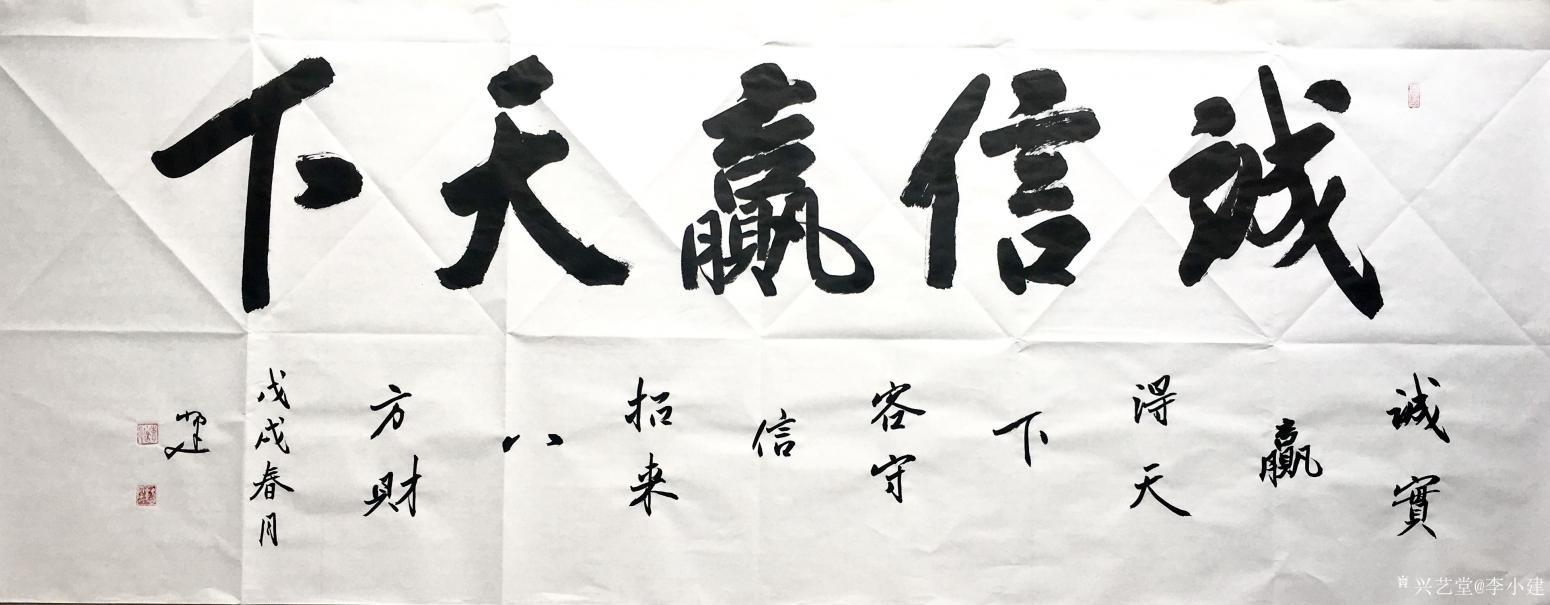 誠信贏天下
誠實
贏
得天
下
客守
信
招来
八
方財
戊戌春月
兴艺堂@李小建